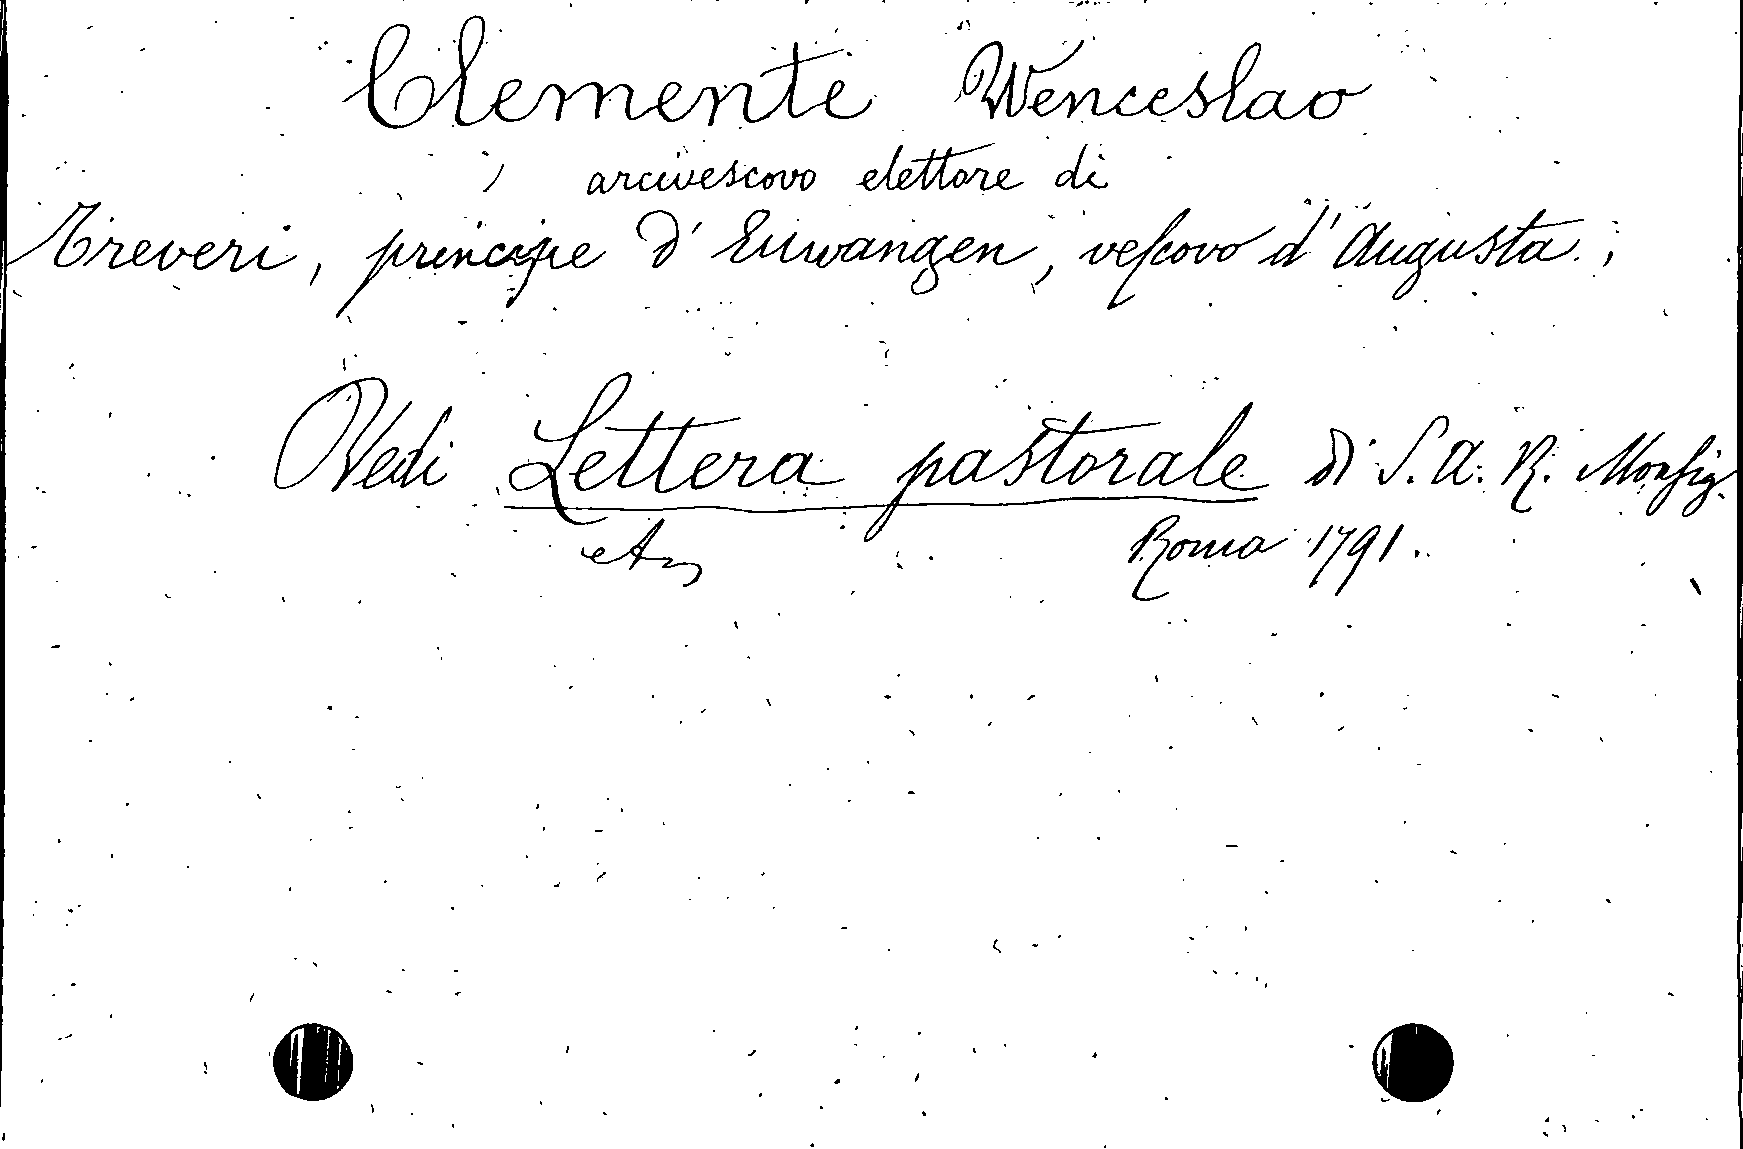 Clemente Wenceslao
arcivescovo elettore di
Treveri, principe d' Euwangen, vescovo d' Augusta.;
Vedi Lettera pastorale di S. A. R. Monsig.
etc Roma 1791.